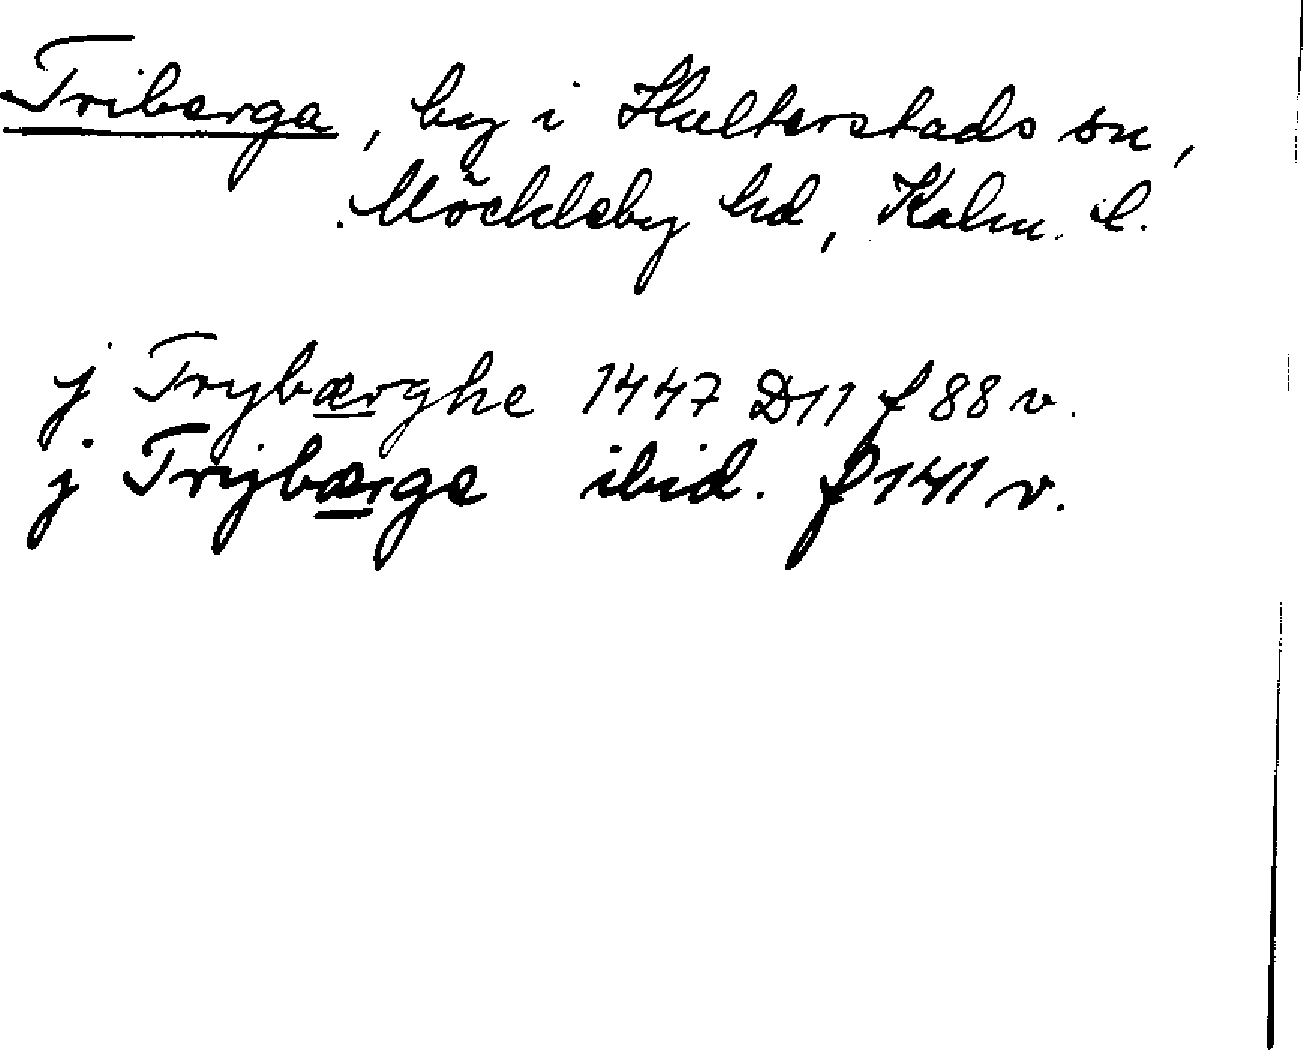 Triberga, by i Hulterstads sn,
Möckleby hd, Kalm. l.
j Trybærghe 1447 D11 f 88 v.
j Trijbærge ibid. f 141 v.